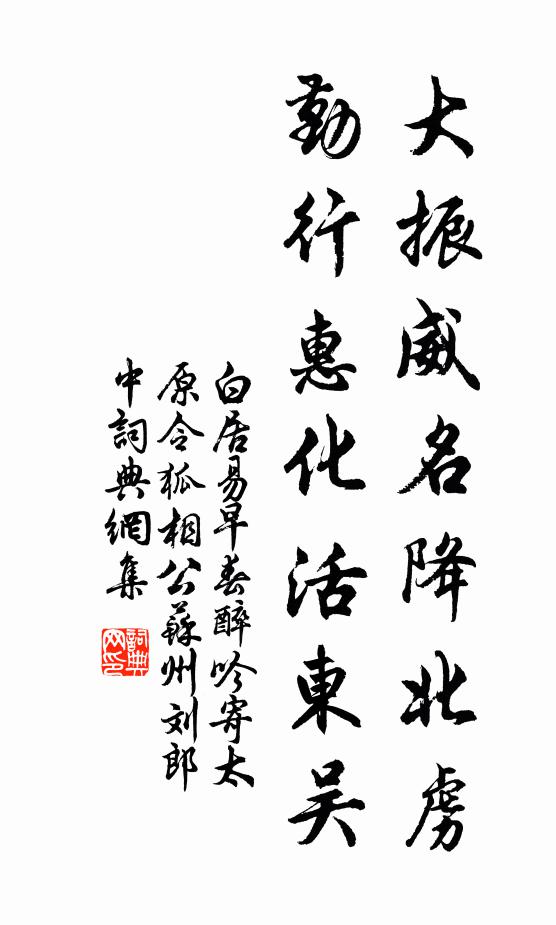 大振威名降北虜
勤行惠化活東吴
白居易早春醉吟寄太
原令狐相公蘇州刘郎
中詞典網集
詞典网印